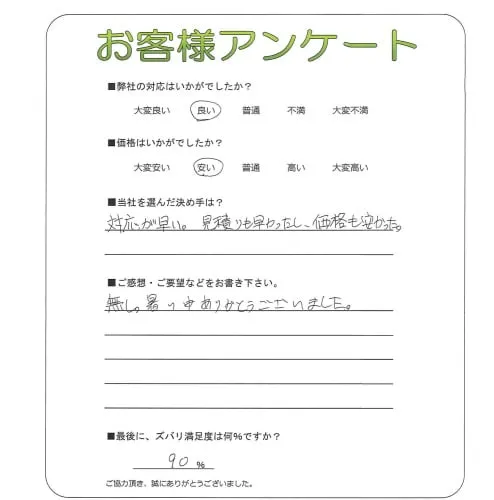 お客様アンケート
■弊社の対応はいかがでしたか？
大変良い 良い 普通 不満 大変不満
■価格はいかがでしたか？
大変安い 安い 普通 高い 大変高い
■当社を選んだ決め手は？
対応が早い。見積りも早かったし、価格も安かった。
■ご感想・ご要望などをお書き下さい。
無し。暑い中ありがとうございました。
■最後に、ズバリ満足度は何%ですか？
90 %
ご協力頂き、誠にありがとうございました。